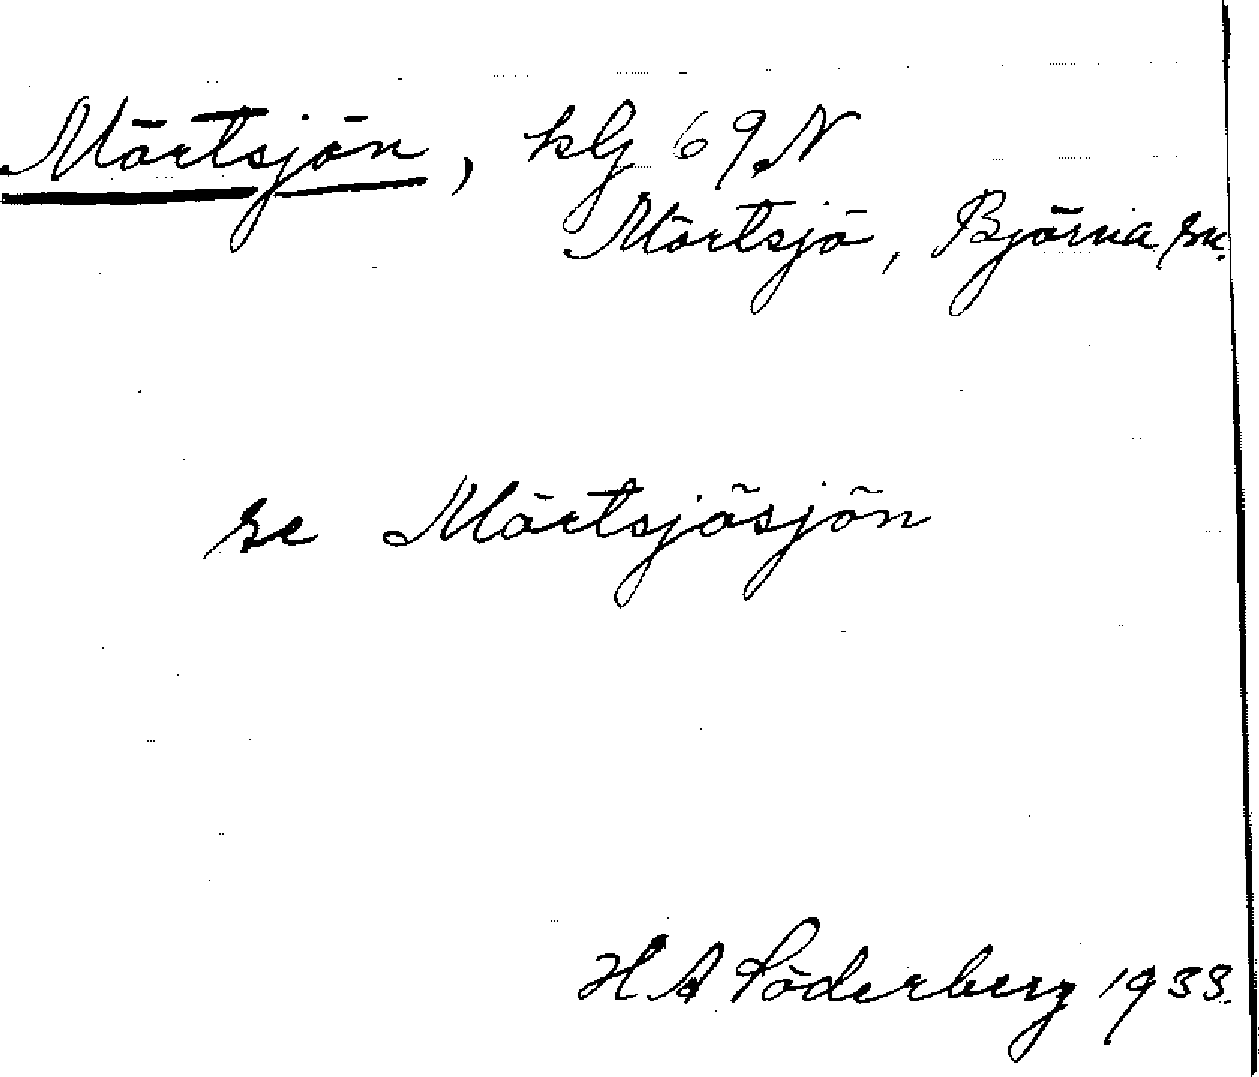 Mörtsjön, kbl 69 N
Mörtsjö, Björna sn.
se Mörtsjösjön
H A Söderberg 1933.